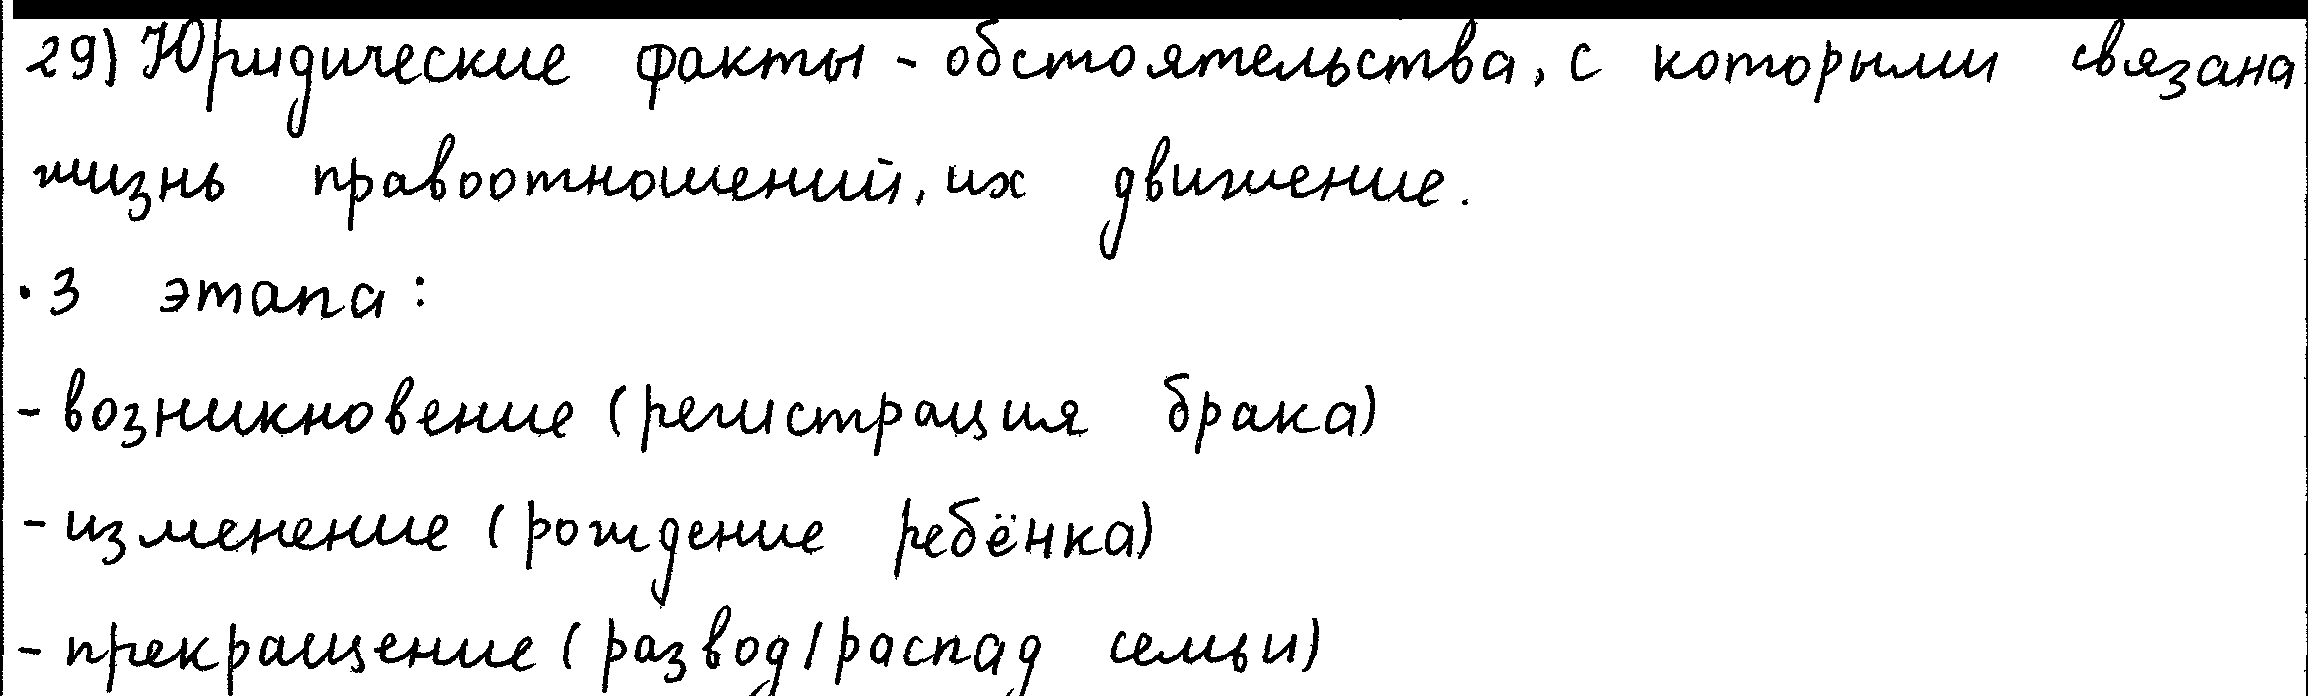 29) Юридические факты - обстоятельства, с которыми связана
жизнь правоотношений, их движение.
· 3 этапа:
- возникновение (регистрация брака)
- изменение (рождение ребёнка)
- прекращение (развод/распад семьи)